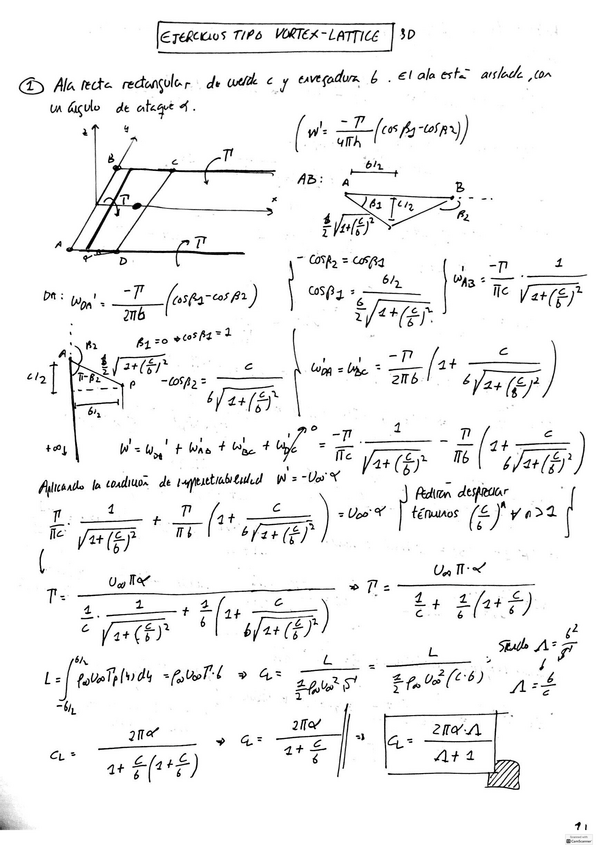 EJERCICIOS TIPO VORTEX-LATTICE 3D
① Ala recta rectangular de cuerda c y envergadura b. El ala está aislada, con
un ángulo de ataque α.
(W' = -Γ/(4πh) (cosβ1 - cosβ2))
z y B C Γ x Γ A D Γ
AB: b/2 A B β1 c/2 β2 b/2 √(1+(c/b)²)
DA: W'DA = -Γ/(2πb) (cosβ1 - cosβ2)
- cosβ2 = cosβ1
cosβ1 = (b/2)/(b/2 √(1+(c/b)²))
W'AB = -Γ/(πc) · 1/√(1+(c/b)²)
A β2 π-β2 c/2 b/2 P +∞ b/2 √(1+(c/b)²)
β1 = 0 → cosβ1 = 1
-cosβ2 = c/(b√(1+(c/b)²))
W'DA = W'BC = -Γ/(2πb) (1 + c/(b√(1+(c/b)²)))
W' = W'DA + W'AB + W'BC + W'DC⁰ = -Γ/(πc) · 1/√(1+(c/b)²) - Γ/(πb) (1 + c/(b√(1+(c/b)²)))
Aplicando la condición de impenetrabilidad W' = -U∞·α
Γ/(πc) · 1/√(1+(c/b)²) + Γ/(πb) (1 + c/(b√(1+(c/b)²))) = U∞·α
Pedirán despreciar
términos (c/b)ⁿ ∀ n>1
Γ = U∞πα/(1/c · 1/√(1+(c/b)²) + 1/b (1 + c/(b√(1+(c/b)²)))) ⇒ Γ = U∞π·α/(1/c + 1/b (1 + c/b))
L = ∫_{-b/2}^{b/2} ρ∞U∞Γp(y)dy = ρ∞U∞Γ·b ⇒ CL = L/(½ρ∞U∞²S) = L/(½ρ∞U∞²(c·b)) ; Siendo Λ = b²/S
Λ = b/c
CL = 2πα/(1 + c/b(1 + c/b)) ⇒ CL = 2πα/(1 + c/b) ⇒ CL = 2πα·Λ/(Λ+1)
1
CamScanner